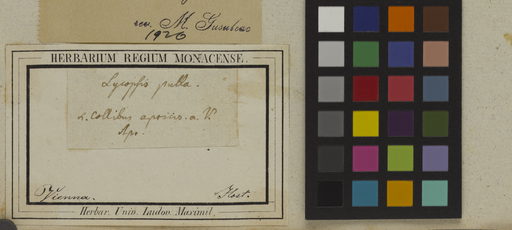 rev. M. Gusuleac
1926
HERBARIUM REGIUM MONACENSE.
Lycopsis pulla.
collibus apricis. a. V.
Apr.
Vienna. Host.
Herbar. Univ. Ludov. Maximil.